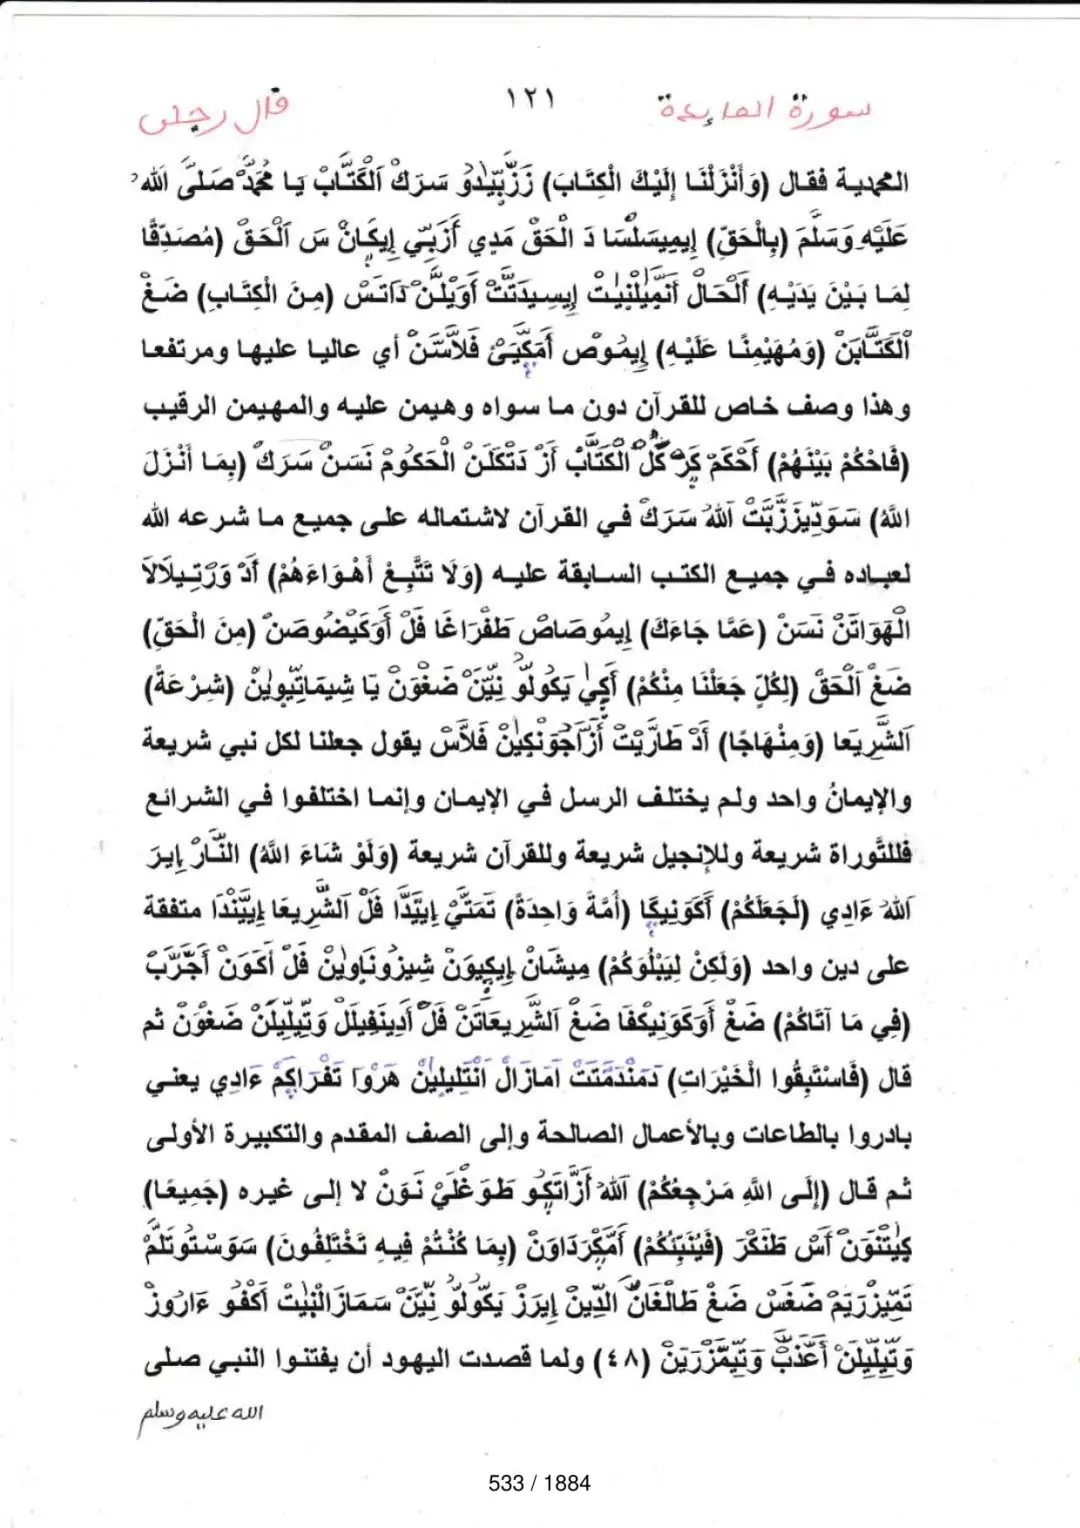 قال رجلن ١٢١ سورة المايدة
المحمدية فقال (وَأَنْزَلْنَا إِلَيْكَ الْكِتَابَ) زَزُّبِّيْدُو سَرَكْ اَلْكْتَّابْ يَا مُحَمَّدْ صَلَّى اللهُ
عَلَيْهِ وَسَلَّمَ (بِالْحَقِّ) إِيمِيسَلْسَا دَ الْحَقْ مَدِي أَزَبِّي إِيكَانْ سَ اَلْحَقْ (مُصَدِّقًا
لِمَا بَيْنَ يَدَيْهِ) اَلْحَالْ أَنْمِيلْنِيتْ إِيسِيدَتَّتْ أَوَيْلَّنْ دَاتَسْ (مِنَ الْكِتَابِ) ضَغْ
اَلْكَتَّابَنْ (وَمُهَيْمِنًا عَلَيْهِ) إِيمُوصْ أَمَكَّيَئْ فَلاَّسَنْ أي عاليا عليها ومرتفعا
وهذا وصف خاص للقرآن دون ما سواه وهيمن عليه والمهيمن الرقيب
(فَاحْكُمْ بَيْنَهُمْ) أَحْكَمْ كَرْ كُلْ اَلْكَتَّابْ أَزْ دَتْكَلَنْ الْحَكُومْ نَسَنْ سَرَكْ (بِمَا أَنْزَلَ
اللهُ) سَوَدِّيزَزُّبَّتْ اَللهْ سَرَكْ في القرآن لاشتماله على جميع ما شرعه الله
لعباده في جميع الكتب السابقة عليه (وَلَا تَتَّبِعْ أَهْوَاءَهُمْ) أَدْ وَرْتِيلَالَا
الْهَوَاتَنْ نَسَنْ (عَمَّا جَاءَكَ) إِيمُوصَاصْ طَفْرَاغَا فَلْ أَوَكَيْضُوصَنْ (مِنَ الْحَقِّ)
ضَغْ اَلْحَقْ (لِكُلٍّ جَعَلْنَا مِنْكُمْ) أَكِيْ يَكُولُو نِيَّنْ ضَغْوَنْ يَا شِيمَاتِيوِيْنْ (شِرْعَةً)
اَلشَّرِيعَا (وَمِنْهَاجًا) أَدْ طَارَّيْتْ أَزَّاجَوْنَكِيْنْ فَلاَّسْ يقول جعلنا لكل نبي شريعة
والإيمانُ واحد ولم يختلف الرسل في الإيمان وإنما اختلفوا في الشرائع
فللتوراة شريعة وللإنجيل شريعة وللقرآن شريعة (وَلَوْ شَاءَ اللهُ) النَّارْ إِيرَ
اَللهْ ءَادِي (لَجَعَلَكُمْ) أَكَوَنِيكَا (أُمَّةً وَاحِدَةً) تَمَتَّيْ إِيَتَدَّا فَلْ اَلشَّرِيعَا إِيَتَّدَا متفقة
على دين واحد (وَلَكِنْ لِيَبْلُوَكُمْ) مِيشَانْ إِيكِيوَنْ شِيزُونَاوِيْنْ فَلْ أَكَوَنْ أَجَرَّبْ
(فِي مَا آتَاكُمْ) ضَغْ أَوَكَوَنِيكْفَا ضَغْ اَلشَّرِيعَاتَنْ فَلْ أَدِينَفِيلَلْ وَتِّيلِيلَنْ ضَغْوَنْ ثم
قال (فَاسْتَبِقُوا الْخَيْرَاتِ) دَمَنْدَمَتَتْ اَمَازَالْ اَنْتَلِيلِيْنْ هَرْوَا تَفْرَاكَمْ ءَادِي يعني
بادروا بالطاعات وبالأعمال الصالحة وإلى الصف المقدم والتكبيرة الأولى
ثم قال (إِلَى اللهِ مَرْجِعُكُمْ) اَللهْ أَزَّاتَكُو طَوَغْلَيْ نَوَنْ لا إلى غيره (جَمِيعًا)
كِيْتْنَوَنْ أَسْ طَنْكَرْ (فَيُنَبِّئُكُمْ) أَمَّكِرَدَاوَنْ (بِمَا كُنْتُمْ فِيهِ تَخْتَلِفُونَ) سَوَسْتُوتَلَّمْ
تَمَيَّزْرَيَمْ ضَغَسْ ضَغْ طَالْغَانْ الدِّينْ إِيرَزْ يَكُولُو نِيَّنْ سَمَازَالْنِيْتْ أَكْفُو ءَارُوزْ
وَتِّيلِيلَنْ أَعَذَّبْ وَتِّيَمَّزْرَيَنْ (٤٨) ولما قصدت اليهود أن يفتنوا النبي صلى
الله عليه وسلم
533 / 1884